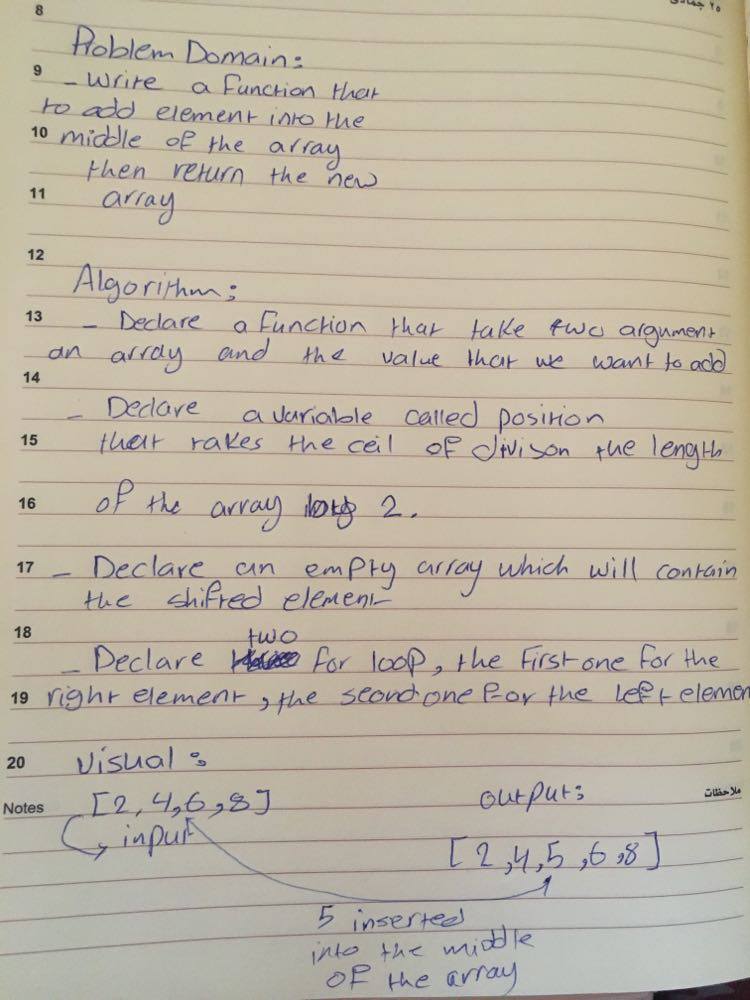 8
Problem Domain:
9 - Write a function that
to add element into the
10 middle of the array
then return the new
11 array
12
Algorithm:
13 - Declare a function that take two argument
an array and the value that we want to add
14
- Declare a variable called position
15 that takes the ceil of divison the length
16 of the array 2.
17 - Declare an empty array which will contain
the shifted element
18 two
- Declare for loop, the first one for the
19 right element, the second one for the left elemen
20 Visual:
Notes [2,4,6,8] output: ملاحظات
input
[2,4,5,6,8]
5 inserted
into the middle
of the array